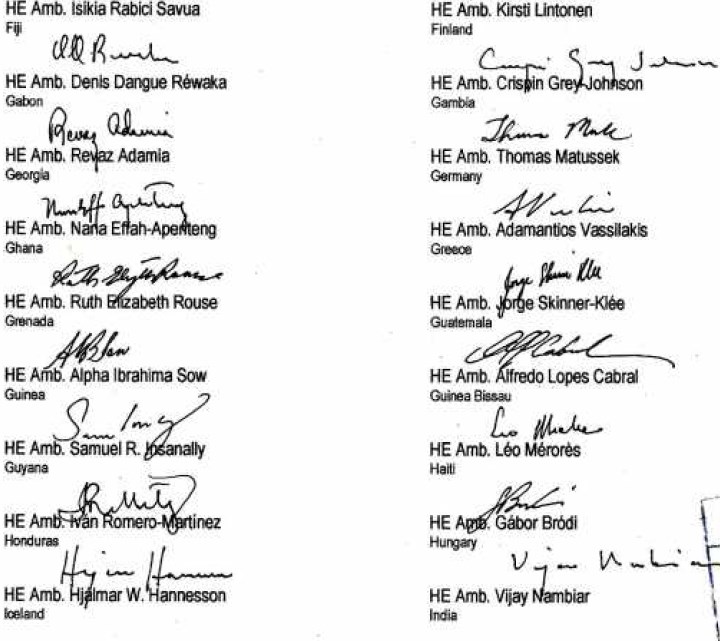 HE Amb. Isikia Rabici Savua
Fiji
HE Amb. Kirsti Lintonen
Finland
HE Amb. Denis Dangue Réwaka
Gabon
Crispin Grey Johnson
HE Amb. Crispin Grey Johnson
Gambia
Revaz Adamia
HE Amb. Revaz Adamia
Georgia
HE Amb. Thomas Matussek
Germany
HE Amb. Nana Effah-Apenteng
Ghana
HE Amb. Adamantios Vassilakis
Greece
HE Amb. Ruth Elizabeth Rouse
Grenada
HE Amb. Jorge Skinner-Klée
Guatemala
HE Amb. Alpha Ibrahima Sow
Guinea
HE Amb. Alfredo Lopes Cabral
Guinea Bissau
HE Amb. Samuel R. Insanally
Guyana
HE Amb. Léo Mérorès
Haiti
HE Amb. Iván Romero-Martínez
Honduras
HE Amb. Gábor Bródi
Hungary
HE Amb. Hjálmar W. Hannesson
Iceland
Vijay Nambiar
HE Amb. Vijay Nambiar
India